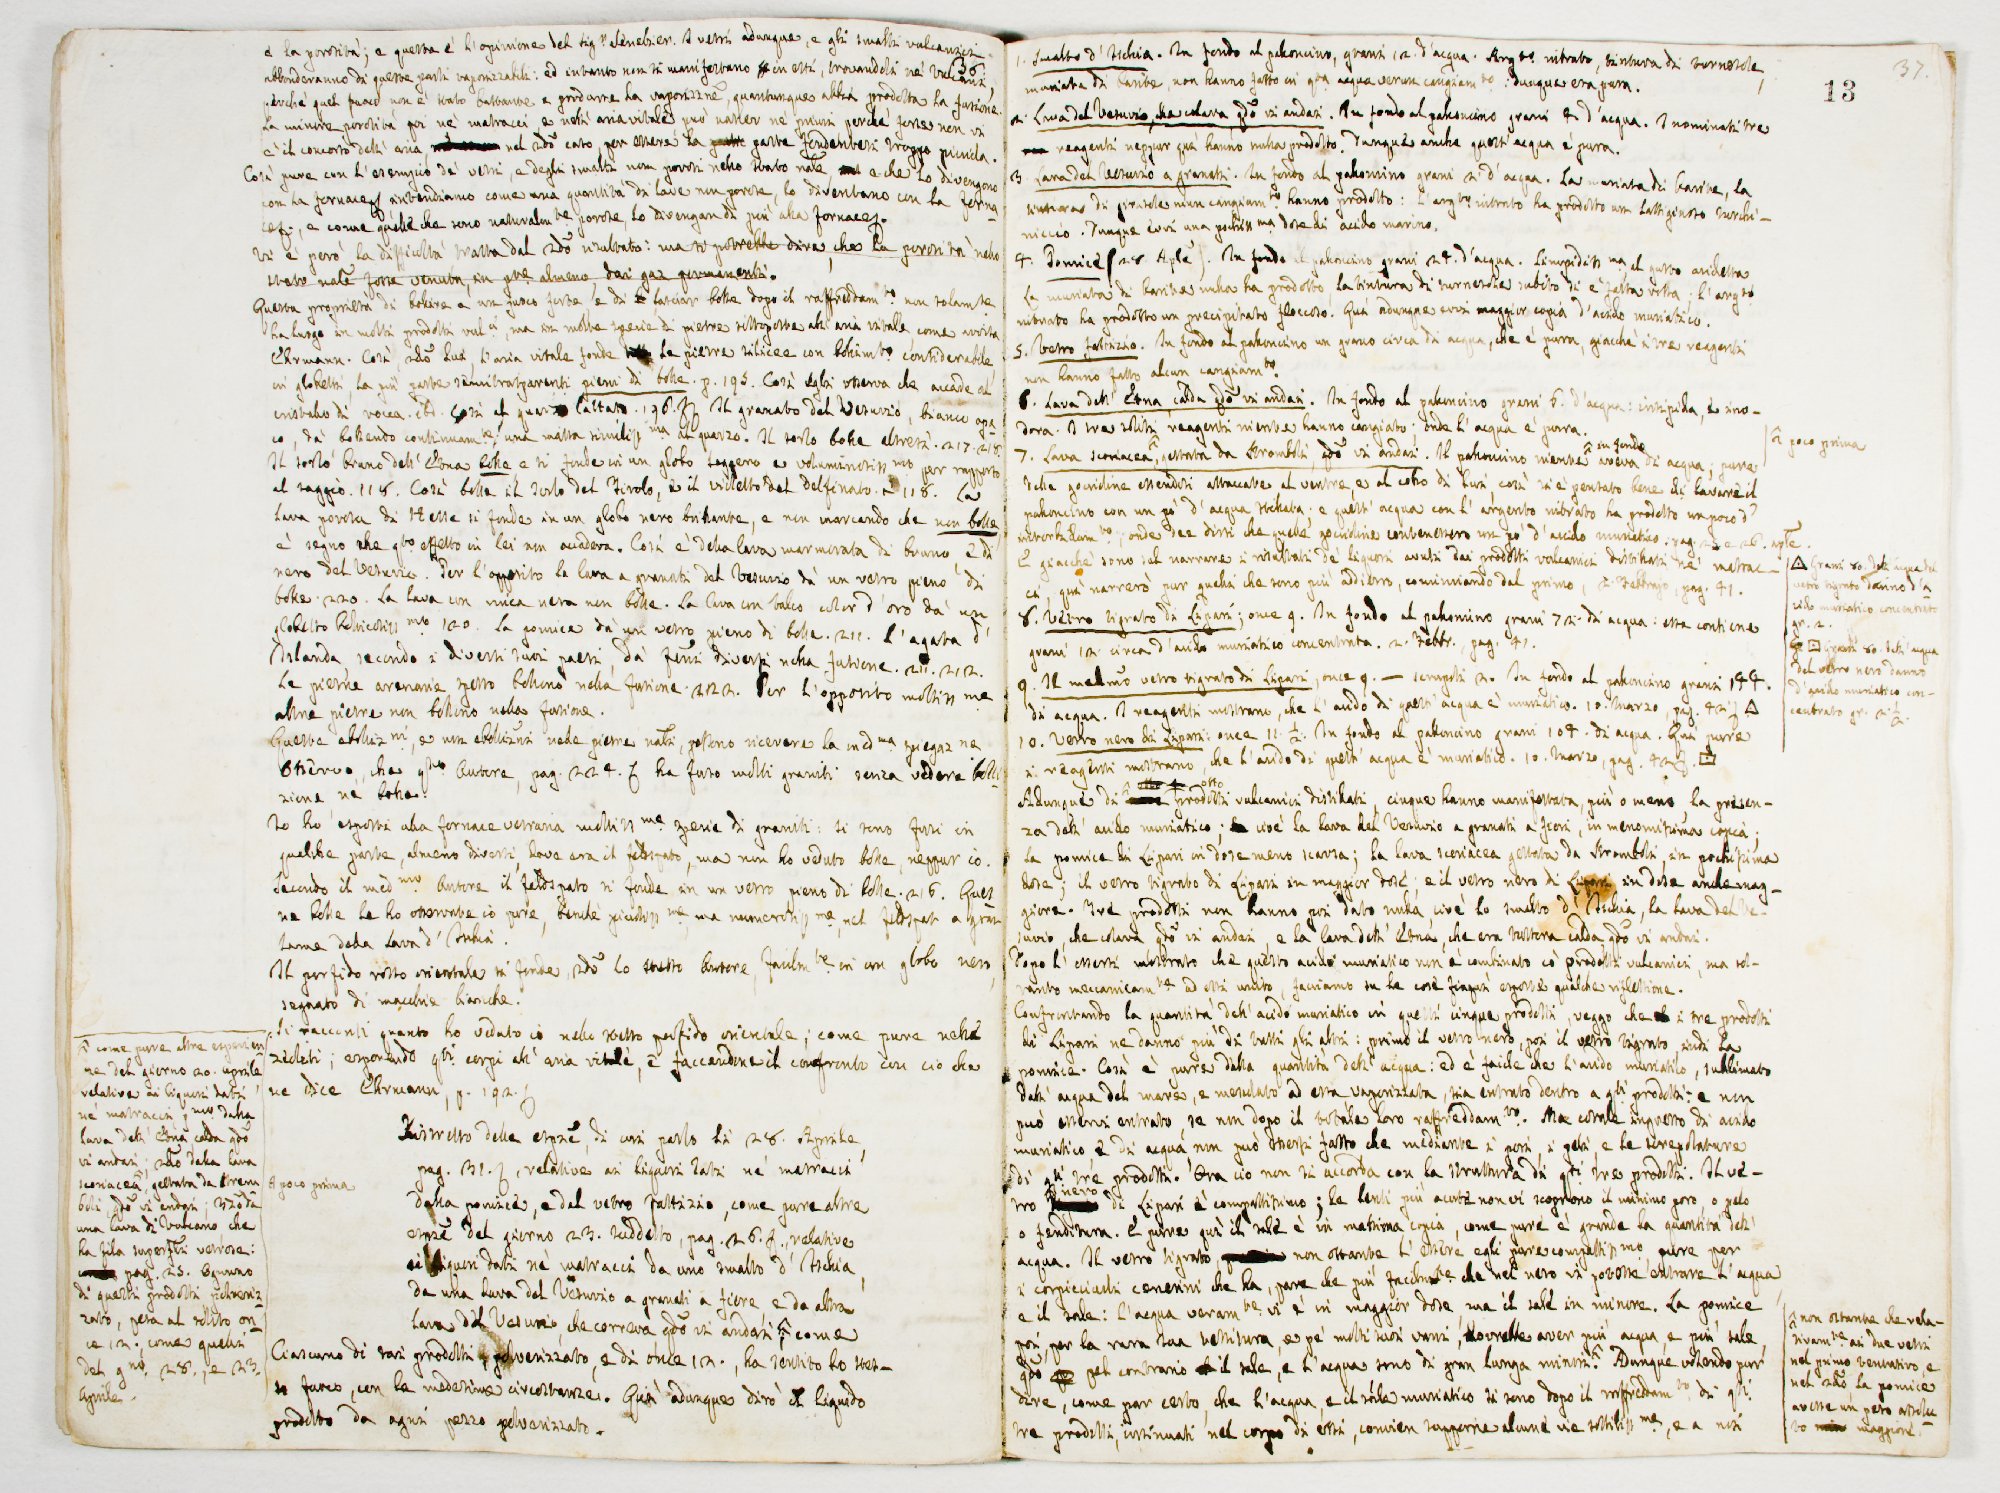 36.
e la porosità; e questa è l'opinione del sig.r Senebier. I vetri adunque, e gli smalti vulcanici
abbonderanno di queste parti vaporizzabili: ed intanto non si manifestano in essi, trovandosi ne' vulcani,
perché quel fuoco non è stato bastante a produrre la vaporizzne, quantunque abbia prodotta la fusione.
La minore porosità poi ne' matracci e nell'aria vitale può nascer ne' primi perché forse non vi
è il concorso dell'aria nel 2do caso per essere la parte fondentesi troppo piccola.
Così pure con l'esempio de' vetri, e degli smalti non porosi nello stato nale, e che lo divengono
con la fornace, intendiamo come una quantità di lave non porose, lo diventano con la forna
ce, e come quelle che sono naturalmte porose, lo divengan di più alla fornace.
Vi è però la difficoltà tratta dal 2do risultato: ma si potrebbe dire, che la porosità nello
stato nale fosse venuta, in pte almeno, dai gaz permanenti.
Questa proprietà di bollire a un fuoco forte, e di lasciar bolle dopo il raffreddamto non solamte
ha luogo in molti prodotti vulci, ma in molte spezie di pietre sottoposte all'aria vitale come avvisa
Ehrmann. Così, 2do lui, l'aria vitale fonde le pietre silicee con bollimto considerabile
in globetti, la più parte semitrasparenti pieni di bolle. p. 195. Così egli osserva che accade al
cristallo di rocca. ibi. Così al quarzo lattato. 196. Il granato del Vesuvio, bianco opa-
co, dà bollendo continuamte una massa similissma al quarzo. Il sorlo bolle altresì. 217. 218.
Il sorlo bruno dell'Etna bolle e si fonde in un globo leggero e voluminosissmo per rapporto
al saggio. 118. Così bolle il sorlo del Tirolo, e il violetto del Delfinato. 118. La
lava porosa di Hesse si fonde in un globo nero brillante, e non marcando che non bolle
è segno che qto effetto in lei non accadeva. Così è della lava marmorata di bruno e di
nero del Vesuvio. Per l'opposito la lava a granati del Vesuvio dà un vetro pieno di
bolle. 220. La lava con mica nera non bolle. La lava con talco color d'oro dà un
globetto bollicosissmo 120. La pomice dà un vetro pieno di bolle. 211. L'agata d'
Islanda, secondo i diversi suoi paesi, dà fenni diversi nella fusione. 211. 212.
Le pietre arenarie spesso bollono nella fusione. 222. Per l'opposito moltissme
altre pietre non bollono nella fusione.
Queste ebollizni, e non ebollizni nelle pietre nali, possono ricevere la medma spiegazne
Osservo, che qsto Autore, pag. 224. ha fuso molti graniti senza vedere bolli-
zione ne bolle.
Io ho esposti alla fornace vetraria moltissme spezie di graniti: si sono fusi in
qualche parte, almeno diversi dove era il feldspato, ma non ho veduto bolle, neppur io.
Secondo il medmo Autore il feldspato si fonde in un vetro pieno di bolle. 216. Ques-
te bolle le ho osservate io pure, benché picciolissme, ma numerosissme nel feldspat a squam-
lame della Lava d'Ischia.
Il porfido rosso orientale si fonde, 2do lo stesso Autore, facilmte in un globo nero,
segnato di macchie bianche.
Si racconti quanto ho veduto io nello stesso porfido orientale; come pure nelle
zeoliti; esponendo qti corpi all'aria vitale, e facendone il confronto con ciò che
ne dice Ehrmann, p. 192.
Ristretto delle espze, di cui parlo li 28. Aprile
pag. 31., relative ai liquori dati ne' matracci
dalla pomice, e dal vetro fattizio, come pure altre
espze del giorno 23. suddetto, pag. 26., relative
ai liquori dati ne' matracci da uno smalto d'Ischia,
da una lava del Vesuvio a granati a fiore e da altra
lava del Vesuvio, che correva qdo vi andai come
Ciascuno di tai prodotti polverizzato, e di once 12., ha sentito lo stes-
so fuoco, con le medesime circostanze. Quà adunque dirò il liquido
prodotto da ogni pezzo polverizzato.
come pure altre esperien
ze del giorno 20. aprile
relative ai liquori dati
ne' matracci pmo dalla
lava dell'Etna calda qdo
vi andai; 2do dalla lava
scoriacea, gettata da Strom
boli, qdo vi andai; 3zo da
una lava di Vulcano che
ha fila superfli vetrose:
pag. 25. Ognuno
di questi prodotti polveriz-
zato, pesa al solito on-
ce 12., come quelli
del gno 28., e 23.
Aprile.
poco prima
37.
13
1. Smalto d'Ischia. In fondo al palloncino, grani 12. d'acqua. Argto nitrato, tintura di tornesole,
muriata di barite, non hanno fatto in qta acqua verun cangiamto: dunque era pura.
2. Lava del Vesuvio, che colava qdo vi andai. In fondo al palloncino grani 4. d'acqua. I nominati tre
reagenti neppur quà hanno nulla prodotto. Dunque anche quest'acqua è pura.
3. Lava del Vesuvio a granati. In fondo al palloncino grani 2. d'acqua. La muriata di barite, la
tintura di girasole niun cangiamto hanno prodotto: l'argto nitrato ha prodotto un lattiginoso turchi-
niccio. Dunque evvi una pochissma dose di acido marino.
4. Pomice (28 Aple). In fondo al palloncino grani 24. d'acqua. Limpidissma il gusto acidetta
La muriata di barite nulla ha prodotto, la tintura di tornesole subito si è fatta rossa: l'argto
nitrato ha prodotto un precipitato floccoso. Quà adunque evvi maggior copia d'acido muriatico.
5. Vetro fattizio. In fondo al palloncino un grano circa di acqua, che è pura, giacché i tre reagenti
non hanno fatto alcun cangiamto.
6. Lava dell'Etna calda qdo vi andai. In fondo al palloncino grani 6. d'acqua: insipida, e ino-
dora. I tre soliti reagenti niente hanno cangiato; onde l'acqua è pura.
7. Lava scoriacea, gettata da Stromboli, qdo vi andai. Il palloncino niente in fondo aveva di acqua; pure
poco prima
delle gocioline essendosi attaccate al ventre, e al collo di lui, così si è pensato bene di lavare il
palloncino con un pò d'acqua stillata: e quest'acqua con l'argento nitrato ha prodotto un poco d'
intorbidamto, onde dee dirsi che quelle gocioline contenessero un pò d'acido muriatico, pag. 25 e 26. aple.
E giacché sono sul narrare i risultati de' liquori avuti dai prodotti volcanici distillati ne' matrac-
ci, quà narrerò pur quelli che sono più addietro, cominciando dal primo, 2. Febbrajo, pag. 41.
8. Vetro tigrato di Lipari; once 9. In fondo al palloncino grani 72. di acqua: essa contiene
grani 12 circa d'acido muriatico concentrato. 2. Febbr., pag. 41.
9. Il medmo vetro tigrato di Lipari, once 9. — scrupoli 2. In fondo al palloncino grani 144.
di acqua. I reagenti mostrano, che l'acido di quest'acqua è muriatico. 10. Marzo, pag. 42. △
10. Vetro nero di Lipari: once 11 ½. In fondo al palloncino grani 104. di acqua. Quà pure
i reagenti mostrano, che l'acido di quest'acqua è muriatico. 10. Marzo, pag. 42.
△ Grani 80. dell'acqua del
vetro tigrato danno d'a
cido muriatico concentrato
gr. 2.
Grani 80. dell'acqua
del vetro nero danno
d'acido muriatico con-
centrato gr. 2 ½.
Adunque di otto prodotti vulcanici distillati, cinque hanno manifestata, più o meno la presen-
za dell'acido muriatico; cioè la lava del Vesuvio a granati a fiori, in menomissima copia;
la pomice di Lipari in dose meno scarsa; la lava scoriacea gettata da Stromboli, in pochissima
dose; il vetro tigrato di Lipari in maggior dose; e il vetro nero di Lipari in dose anche mag-
giore. Tre prodotti non hanno poi dato nulla, cioè lo smalto d'Ischia, la lava del Ve-
suvio, che colava qdo vi andai, e la lava dell'Etna, che era tuttora calda qdo vi andai.
Dopo l'essersi mostrato che questo acido muriatico non è combinato co' prodotti vulcanici, ma sol-
tanto meccanicamte ad essi unito, facciamo su le cose finqui esposte qualche riflessione.
Confrontando la quantità dell'acido muriatico in questi cinque prodotti, veggo che i tre prodotti
di Lipari ne danno più di tutti gli altri: primo il vetro nero, poi il vetro tigrato indi la
pomice. Così è pure della quantità dell'acqua: ed è facile che l'acido muriatico, sublimato
dall'acqua del mare, e mescolato ad essa vaporizzata, sia entrato dentro a qti prodotti: e non
può essersi entrato, se non dopo il totale loro raffreddamto. Ma cotale ingresso di acido
muriatico e di acqua non può essersi fatto che mediante i pori, i peli e le screpolature
di qti tre prodotti. Ora ciò non si accorda con la struttura di qti tre prodotti. Il ve-
tro nero di Lipari è compattissimo; le lenti più acute non vi scoprono il minimo poro o pelo
o fenditura. E pure quì il sale è in massima copia, come pure è grande la quantità dell'
acqua. Il vetro tigrato, non ostante l'essere egli pure compattissmo, pure per
i corpicciuoli cenerini che ha, pare che più facilmte che nel nero vi potesse entrare l'acqua,
e il sale: l'acqua veramte vi è in maggior dose, ma il sale in minore. La pomice
poi, per la rara sua tessitura, e pe' molti suoi vani, dovrebbe aver più acqua e più sale,
qdo pel contrario il sale, e l'acqua sono di gran lunga minori. Adunque volendo pur
dire, come par certo, che l'acqua, e il sale muriatico si sono dopo il raffreddamto di qti
tre prodotti, insinuati nel corpo di essi, convien supporre alcune vie sottilissme, e a noi
non ostante che rela-
tivamte ai due vetri
nel primo tentativo, e
nel 2do la pomice
avesse un peso assolu
to maggiore.